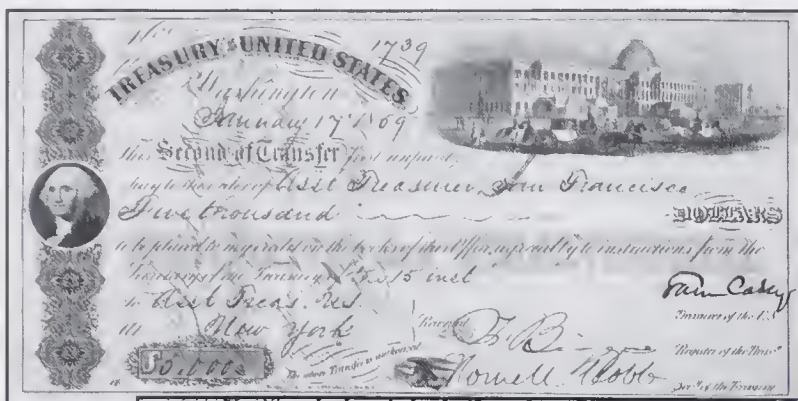 No. 1739
TREASURY OF UNITED STATES
Washington
January 17 1859
this Second of Transfer first unpaid,
pay to the order of Asst Treasurer, San Francisco
Five thousand DOLLARS
to be placed to my credit on the books of that Office, agreeably to instructions from the
Secretary of the Treasury of 15 inst
to Asst Treas. U.S.
at New York
Record
Sam Casey
Treasurer of the U.S.
F. Bigger
Register of the Treasy
$5,000
Howell Cobb
Secy of the Treasury